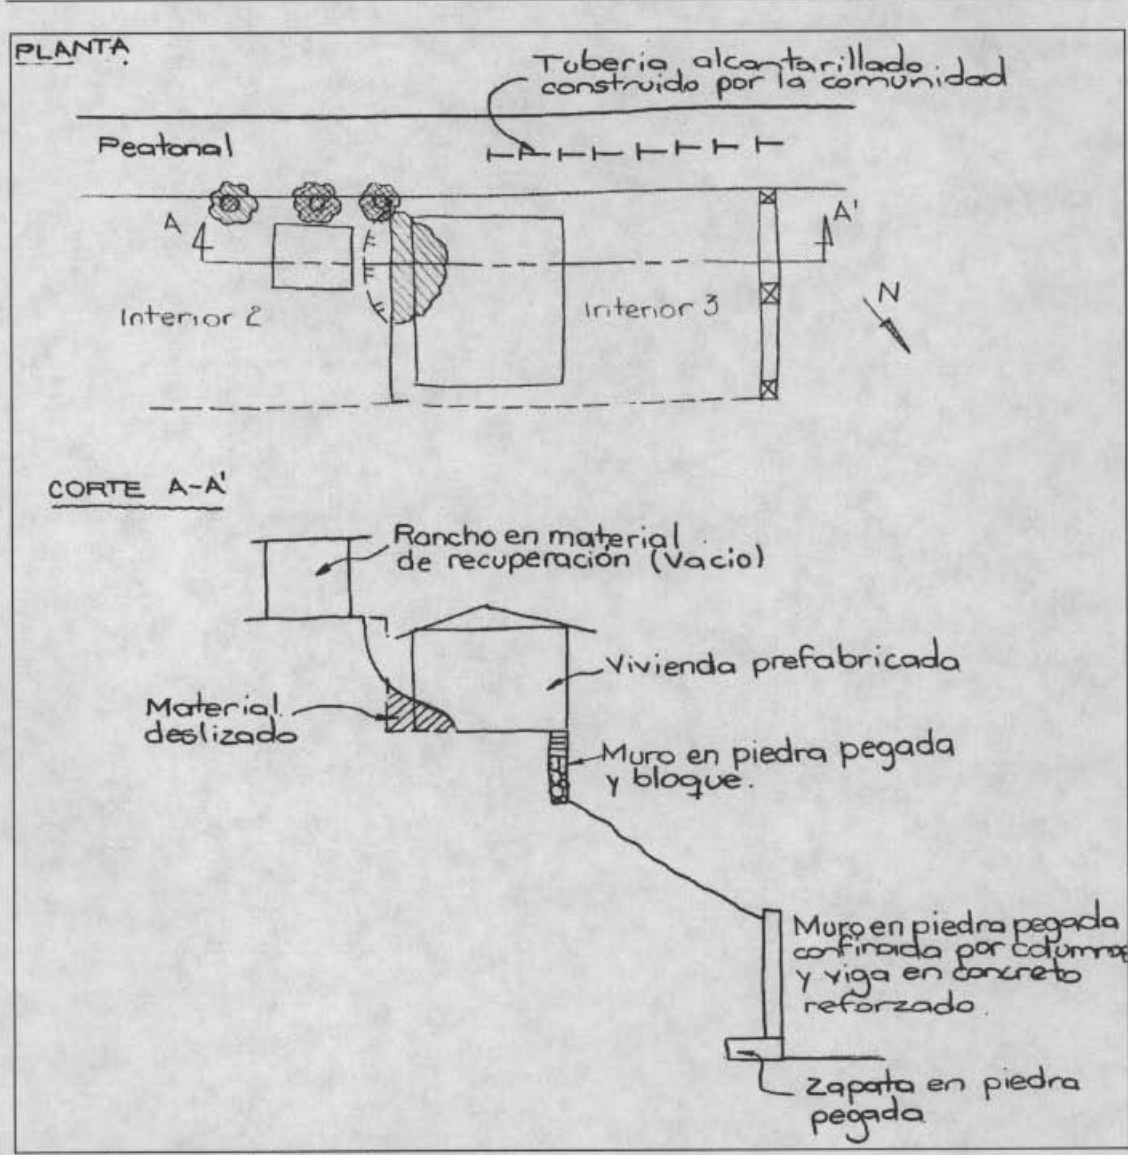 PLANTA
Tuberia alcantarillado
construido por la comunidad
Peatonal
A
A'
Interior 2
Interior 3
N
CORTE A-A'
Rancho en material
de recuperación (Vacio)
Vivienda prefabricada
Material
deslizado
Muro en piedra pegada
y bloque.
Muro en piedra pegada
confinada por columnas
y viga en concreto
reforzado
Zapata en piedra
pegada